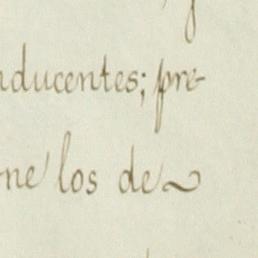 nducentes; pre-
ne los de~